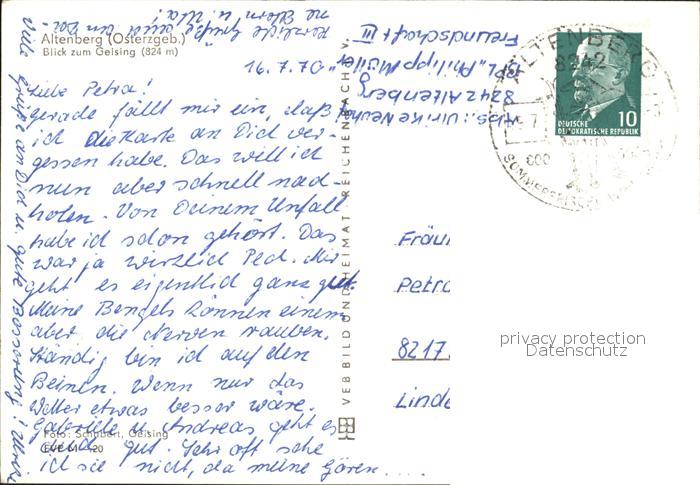 Altenberg (Osterzgeb.)
Blick zum Geising (824 m)
16.7.70
Liebe Petra!
gerade fällt mir ein, daß
ich die Karte an Dich ver-
gessen habe. Das will ich
nun aber schnell nach-
holen. Von Deinem Unfall
habe ich schon gehört. Das
war ja wirklich Pech. Mir
geht es eigentlich ganz gut.
Meine Bengels können einem
aber die Nerven rauben.
Ständig bin ich auf den
Beinen. Wenn nur das
Wetter etwas besser wäre.
Gabriele u. Andreas geht es
auch gut. Sehr oft sehe
ich sie nicht, da meine Gören ....
Viele Grüße an Dich u. gute Besserung! Ulrike
Herzliche Grüße auch an Dei-
ne Eltern u. Uta!
Foto: Schubert, Geising
VEB BILD UND HEIMAT REICHENBACH I. V.
Abs.: Ulrike
8242 Altenberg
"Philipp Müller"
Freundschaft III
ALTENBERG
8242
10
DEUTSCHE
DEMOKRATISCHE REPUBLIK
600
Fräu
Petra
8217
Linde
privacy protection
Datenschutz